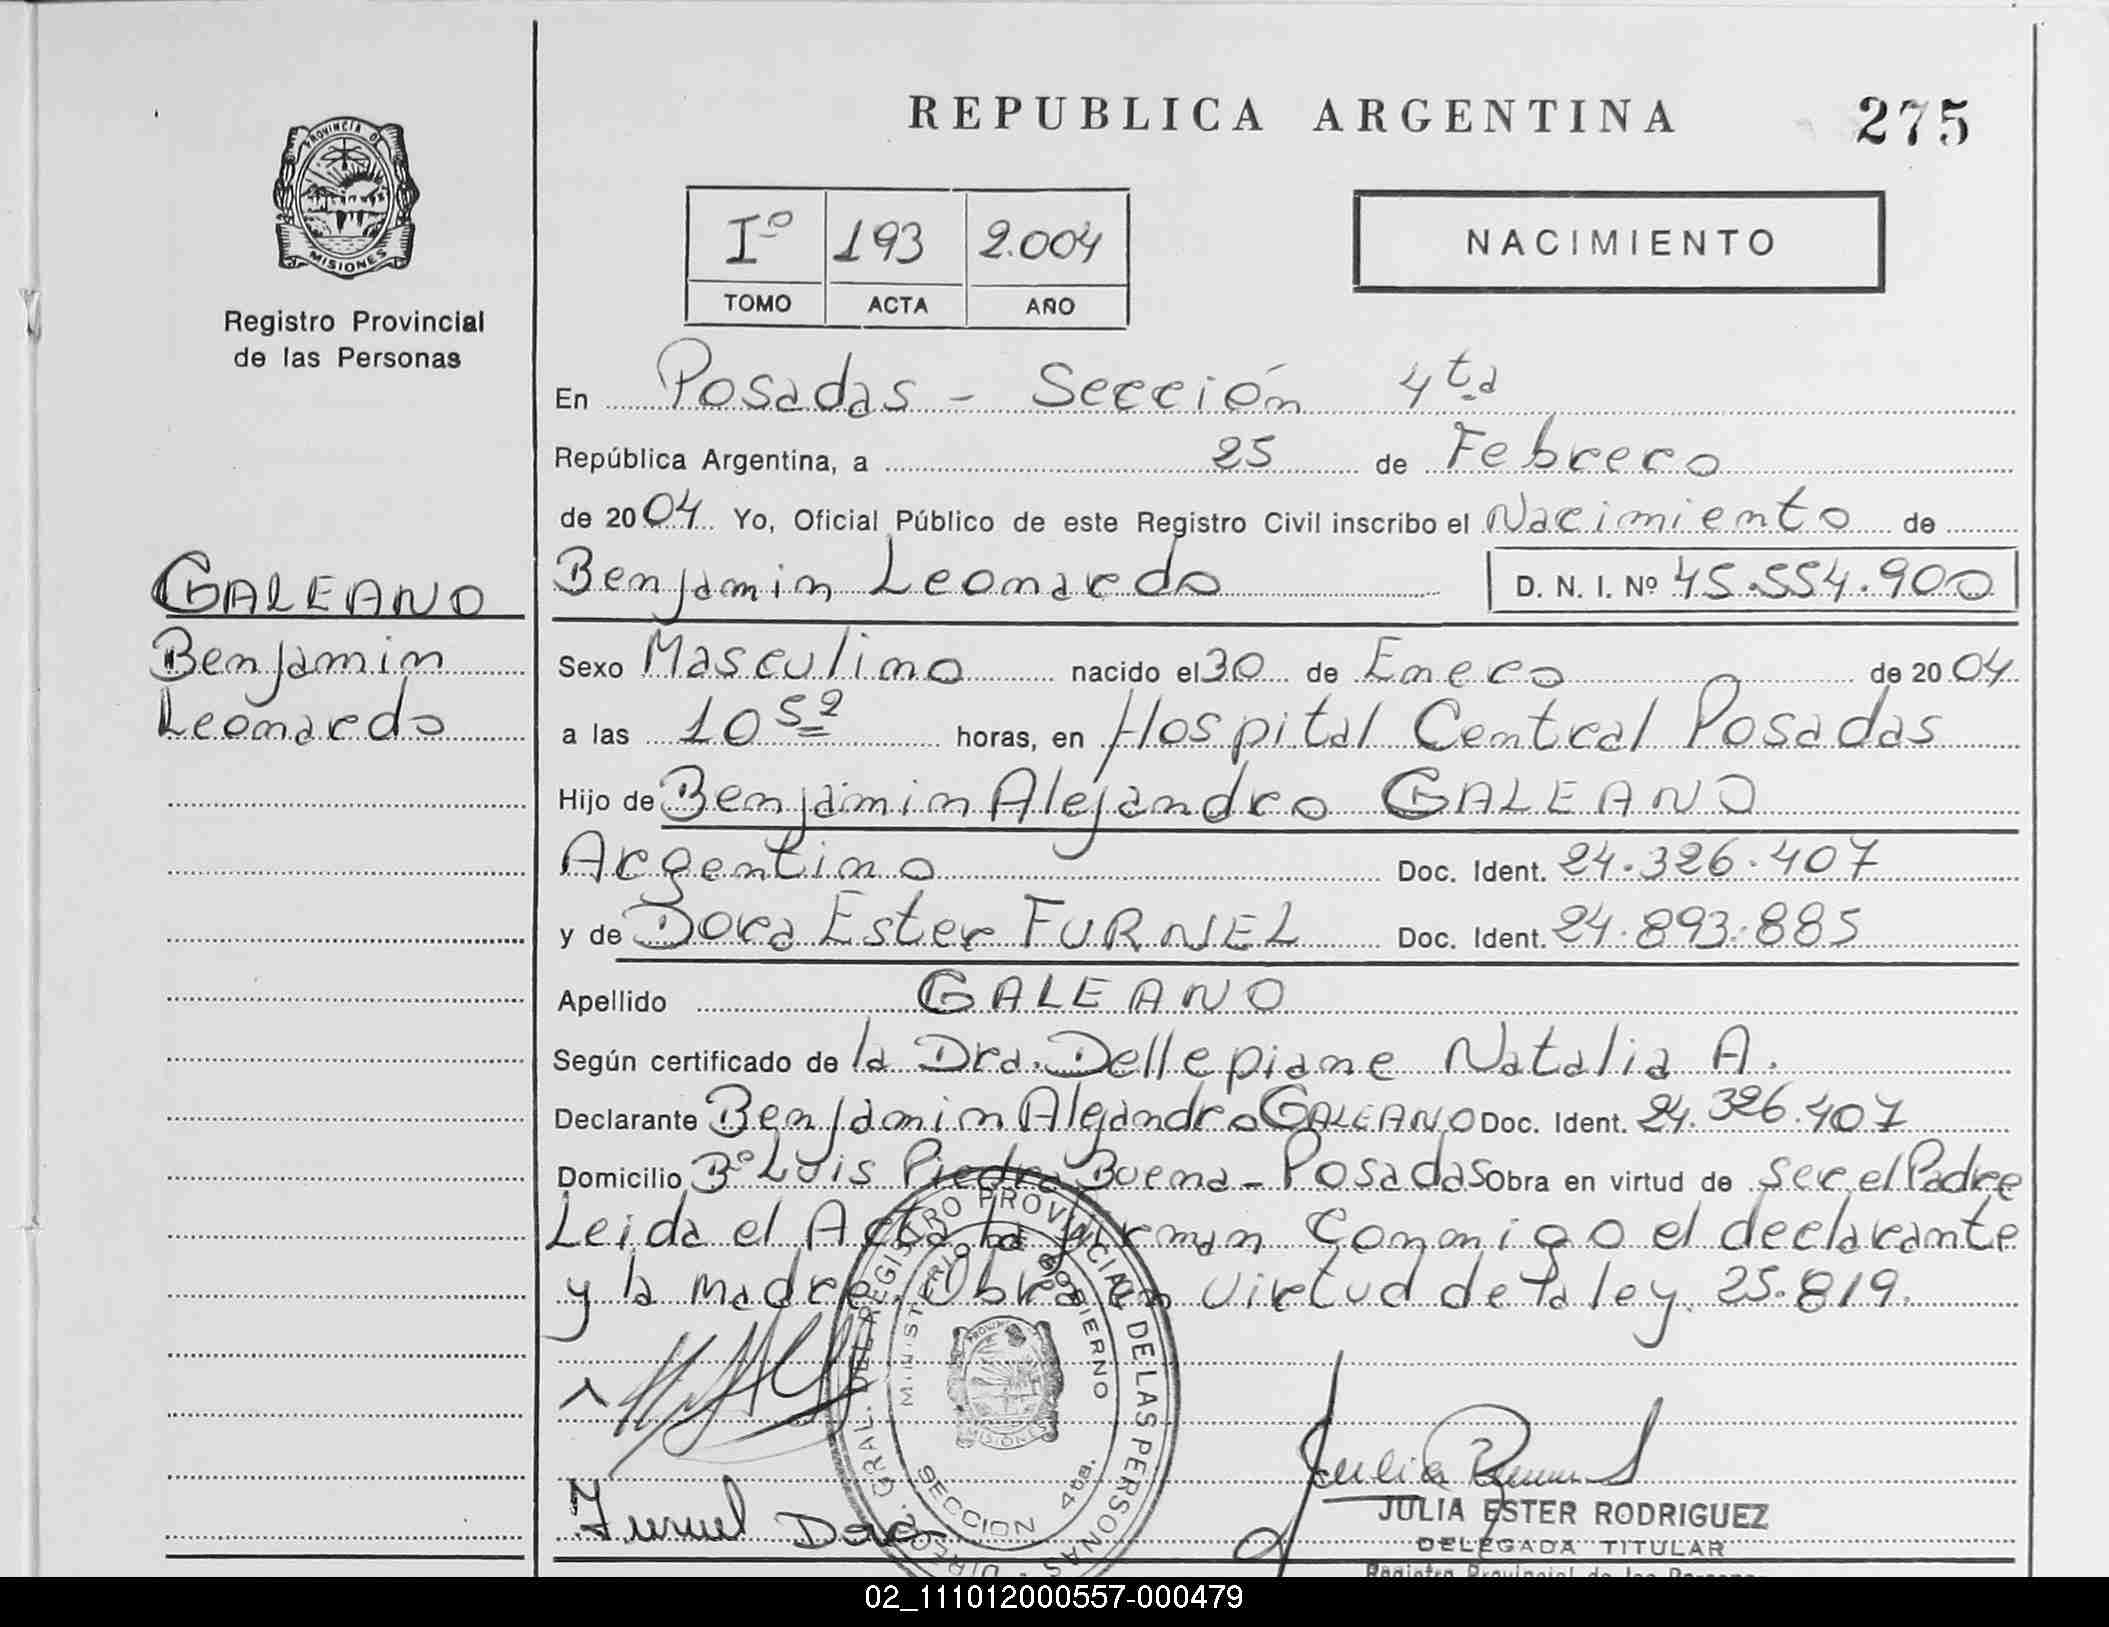 REPUBLICA ARGENTINA
275
PROVINCIA DE
MISIONES
Registro Provincial
de las Personas
Iº 193 2.004
TOMO ACTA AÑO
NACIMIENTO
En Posadas - Sección 4ta
República Argentina, a 25 de Febrero
de 2004 Yo, Oficial Público de este Registro Civil inscribo el Nacimiento de
Benjamin Leonardo D. N. I. Nº 45.554.900
GALEANO
Benjamin
Leonardo
Sexo Masculino nacido el 30 de Enero de 2004
a las 10 52 horas, en Hospital Central Posadas
Hijo de Benjamin Alejandro GALEANO
Argentino Doc. Ident. 24.326.407
y de Dora Ester FURNEL Doc. Ident. 24.893.885
Apellido GALEANO
Según certificado de la Dra. Dellepiane Natalia A.
Declarante Benjamin Alejandro GALEANO Doc. Ident. 24.326.407
Domicilio Bº Luis Piedra Buena - Posadas Obra en virtud de ser el Padre
Leida el Acta la firman Conmigo el declarante
y la madre. Obra en virtud de la ley. 25.819.
DIREC. GRAL. DEL REGISTRO PROVINCIAL DE LAS PERSONAS
MINISTERIO DE GOBIERNO
MISIONES
SECCION 4ta.
Furnel Dora
JULIA ESTER RODRIGUEZ
DELEGADA TITULAR
Registro Provincial de las Personas
02_111012000557-000479